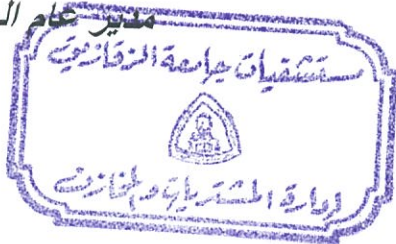 مدير عام ال
مستشفيات جامعة الزقازيق
إدارة المشتريات والمخازن